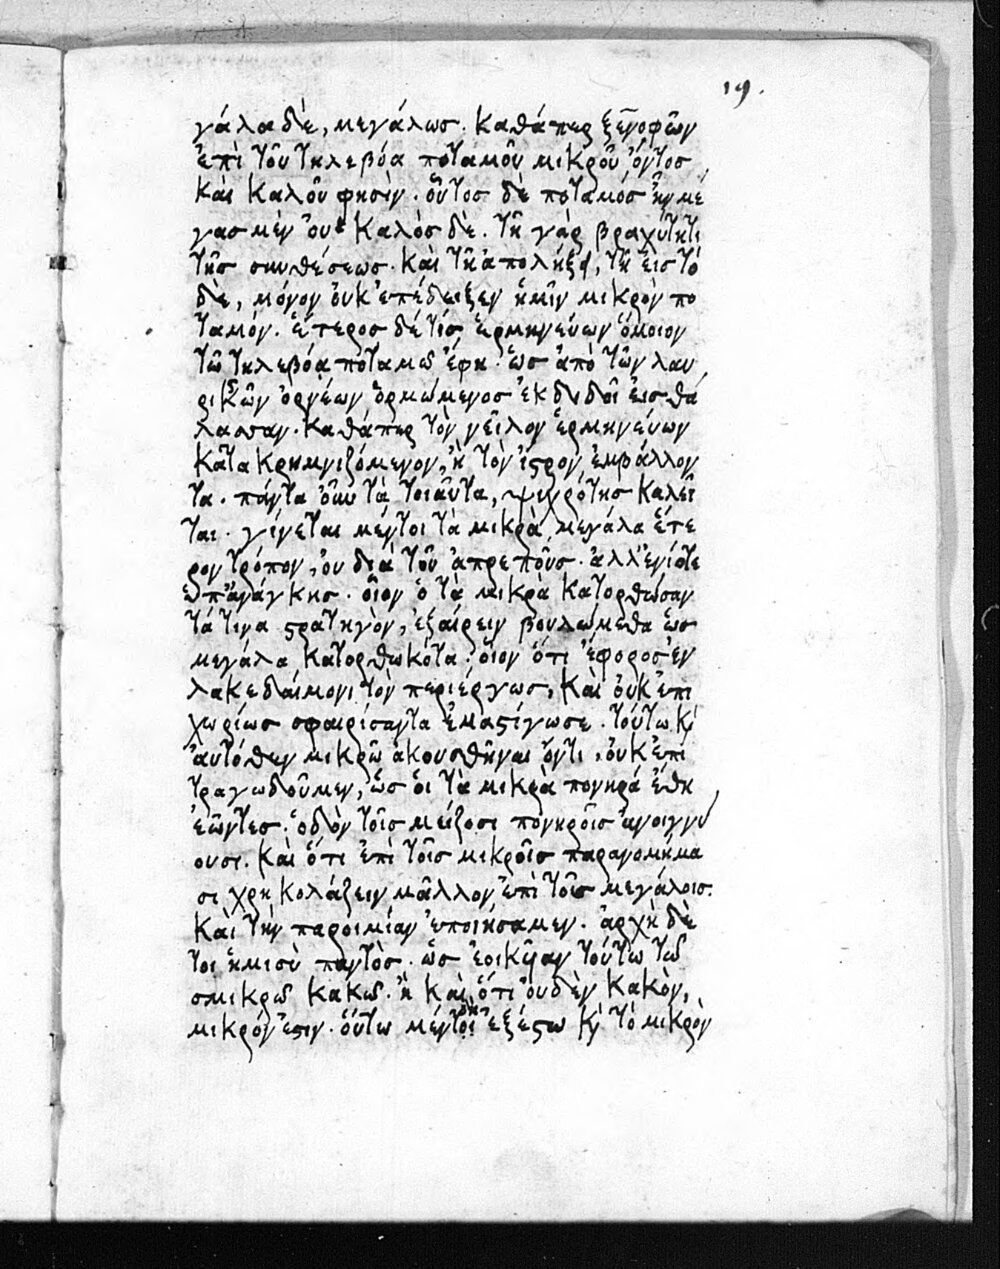 19.
γάλα δὲ, μεγάλως. καθάπερ ξενοφῶν
ἐπὶ τοῦ τηλεβόα ποταμοῦ μικροῦ ὄντος
καὶ καλοῦ φησὶν. οὗτος δὲ ποταμός ἦν μέ
γας μὲν οὐ· καλὸς δὲ. τῆ γὰρ βραχύτητι
τῆς συνθέσεως. καὶ τῆ ἀπολήξει, τῆ εἰς τὸ
δὲ, μόνον οὐκ ἐπέδειξεν ἡμῖν μικρὸν πο
ταμόν. ἕτερος δέ τίς ἑρμηνεύων ὅμοιον
τῶ τηλεβόα ποταμῶ ἔφη. ὡς ἀπὸ τῶν λαυ
ρικῶν ὀρνέων ὁρμώμενος ἐκδιδοῖ εἰς θά
λασσαν. καθάπερ τὸν νεῖλον ἑρμηνεύων
κατακρημνιζόμενον, ἢ τὸν ἴστρον ἐμβάλλον
τα. πάντα οὖν τὰ τοιαῦτα, ψυχρότης καλεῖ
ται. γίνεται μέντοι τὰ μικρὰ μεγάλα ἕτε
ρον τρόπον, οὐ διὰ τοῦ ἀπρεποῦς. ἀλλ' ἐνίοτε
ὑπ' ἀνάγκης. οἷον ὁ τὰ μικρὰ κατορθώσαν
τά τινα στρατηγὸν, ἐξαίρειν βουλώμεθα ὡς
μεγάλα κατορθωκότα. οἷον ὅτι ἔφορος ἐν
λακεδαίμονι τὸν περιέργως, καὶ οὐκ ἐπι
χωρίως σφαιρίσαντα ἐμαστίγωσε. τούτω κ̀
αὐτόθεν μικρῶ ἀκουσθῆναι ὄντι, οὐκ ἐπι
τραγωδοῦμεν, ὡς οἱ τὰ μικρὰ πονηρά ἔθη
ἐῶντες. ὁδὸν τοῖς μείζοσι πονηροῖς ἀνοιγνύ
ουσι. καὶ ὅτι ἐπὶ τοῖς μικροῖς παρανομήμα
σι χρὴ κολάζειν μᾶλλον ἐπὶ τοῖς μεγάλοις.
καὶ τὴν παροιμίαν ἐποιήσαμεν. ἀρχὴ δὲ
τοι ἡμισὺ παντὸς. ὡς ἐοικυῖαν τούτω τῶ
σμικρῶ κακῶ. ἢ καὶ ὅτι οὐδὲν κακὸν,
μικρόν ἐστιν. οὕτω μέντοι δὴ ἐξέστω κ̀ τὸ μικρὸν